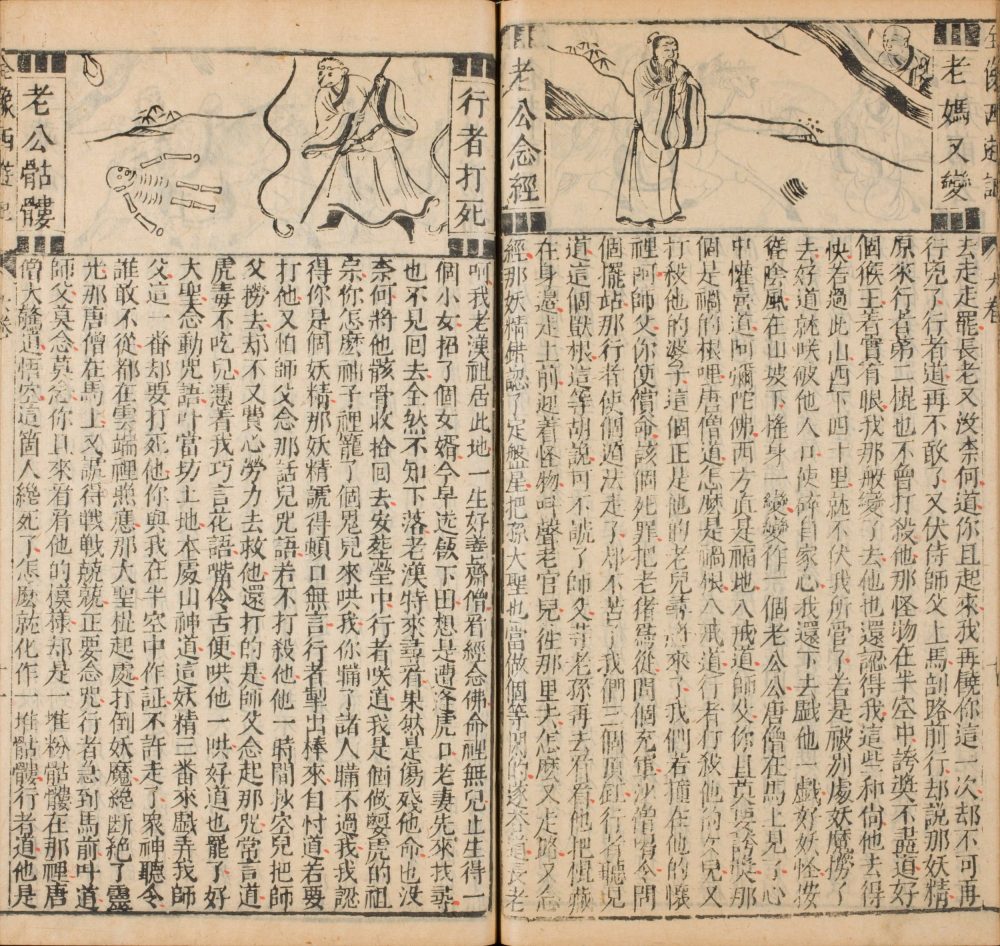 全像西遊記
九卷
老媽又變
老公念經
去走走罷長老又沒奈何道你且起來我再饒你這一次却不可再
行兇了行者道再不敢了又伏侍師父上馬剖路前行却說那妖精
原來行者第二棍也不曾打殺他那怪物在半空中誇獎不盡道好
個猴王着實有眼我那般變了去他也還認得我這些和尚他去得
快若過此山西下四十里就不伏我所管了若是被別處妖魔撈了
去好道就咲破他人口使碎自家心我還下去戲他一戲好妖怪按
聳陰風在山坡下搖身一變變作一個老公公唐僧在馬上見了心
中懽喜道阿彌陀佛西方真是福地八戒道師父你且莫要誇獎那
個是禍的根哩唐僧道怎麽是禍根八戒道行者打殺他的女兒又
打殺他的婆子這個正是他的老兒尋將來了我們若撞在他的懷
裡阿師父你便償命該個死罪把老猪為從問個充軍沙僧喝令問
個擺站那行者使個遁法走了却不苦了我們三個頂缸行者聽見
道這個獃根這等胡說可不諕了師父等老孫再去看看他把棍藏
在身邊走上前迎着怪物叫聲老官兒往那里去怎麽又走路又念
經那妖精錯認了定盤星把孫大聖也當做個等閑的遂答道長老
行者打死
老公骷髏
呵我老漢祖居此地一生好善齋僧看經念佛命裡無兒止生得一
個小女招了個女婿今早送飯下田想是遭逢虎口老妻先來找尋
也不見回去全然不知下落老漢特來尋看果然是傷殘他命也沒
奈何將他骸骨收拾回去安葬塋中行者咲道我是個做㜲虎的祖
宗你怎麽袖子裡籠了個鬼兒來哄我你瞞了諸人瞞不過我我認
得你是個妖精那妖精諕得頓口無言行者掣出棒來自忖道若要
打他又怕師父念那話兒咒語若不打殺他他一時間抄空兒把師
父撈去却不又費心勞力去救他還打的是師父念起那咒常言道
虎毒不吃兒憑着我巧言花語嘴伶舌便哄他一哄好道也罷了好
大聖念動咒語叫當坊土地本處山神道這妖精三番來戲弄我師
父這一番却要打死他你與我在半空中作証不許走了眾神聽令
誰敢不從都在雲端裡照應那大聖棍起處打倒妖魔絕斷絕了靈
光那唐僧在馬上又諕得戰戰兢兢正要念咒行者急到馬前叫道
師父莫念莫念你且來看看他的模樣却是一堆粉骷髏在那裡唐
僧大驚道悟空這箇人纔死了怎麽就化作一堆骷髏行者道他是
全像西遊記